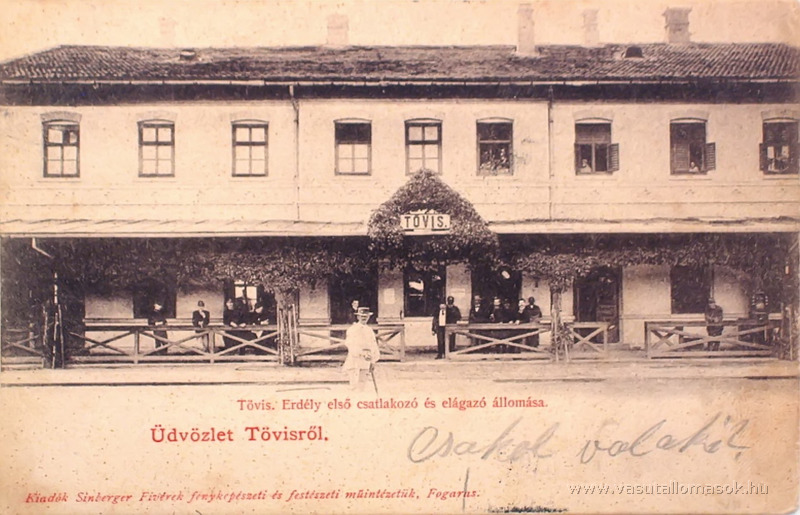 TÖVIS.
Tövis. Erdély első csatlakozó és elágazó állomása.
Üdvözlet Tövisről.
Kiadók Sinberger Fivérek fényképészeti és festészeti műintézetük, Fogaras.
www.vasutallomasok.hu